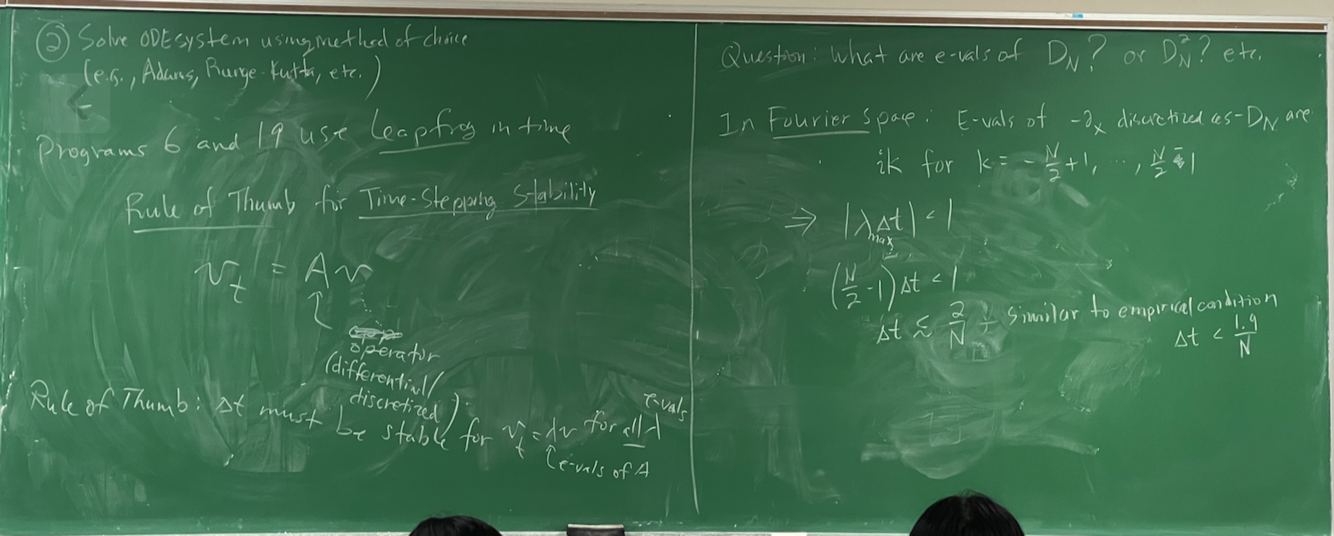 ② Solve ODE system using method of choice
(e.g., Adams, Runge-Kutta, etc.)
Programs 6 and 19 use leapfrog in time
Rule of Thumb for Time-Stepping Stability
v_t = Av
operator
(differential/
discretized)
Rule of Thumb: Δt must be stable for v_t = λv for all λ
e-vals
e-vals of A
Question: What are e-vals of D_N? or D_N^2? etc.
In Fourier Space: E-vals of -∂_x discretized as -D_N are
ik for k = -N/2+1, ..., N/2-1
⇒ |λ_max Δt| < 1
(N/2 - 1) Δt < 1
Δt ≲ 2/N ← similar to empirical condition
Δt < 1.9/N